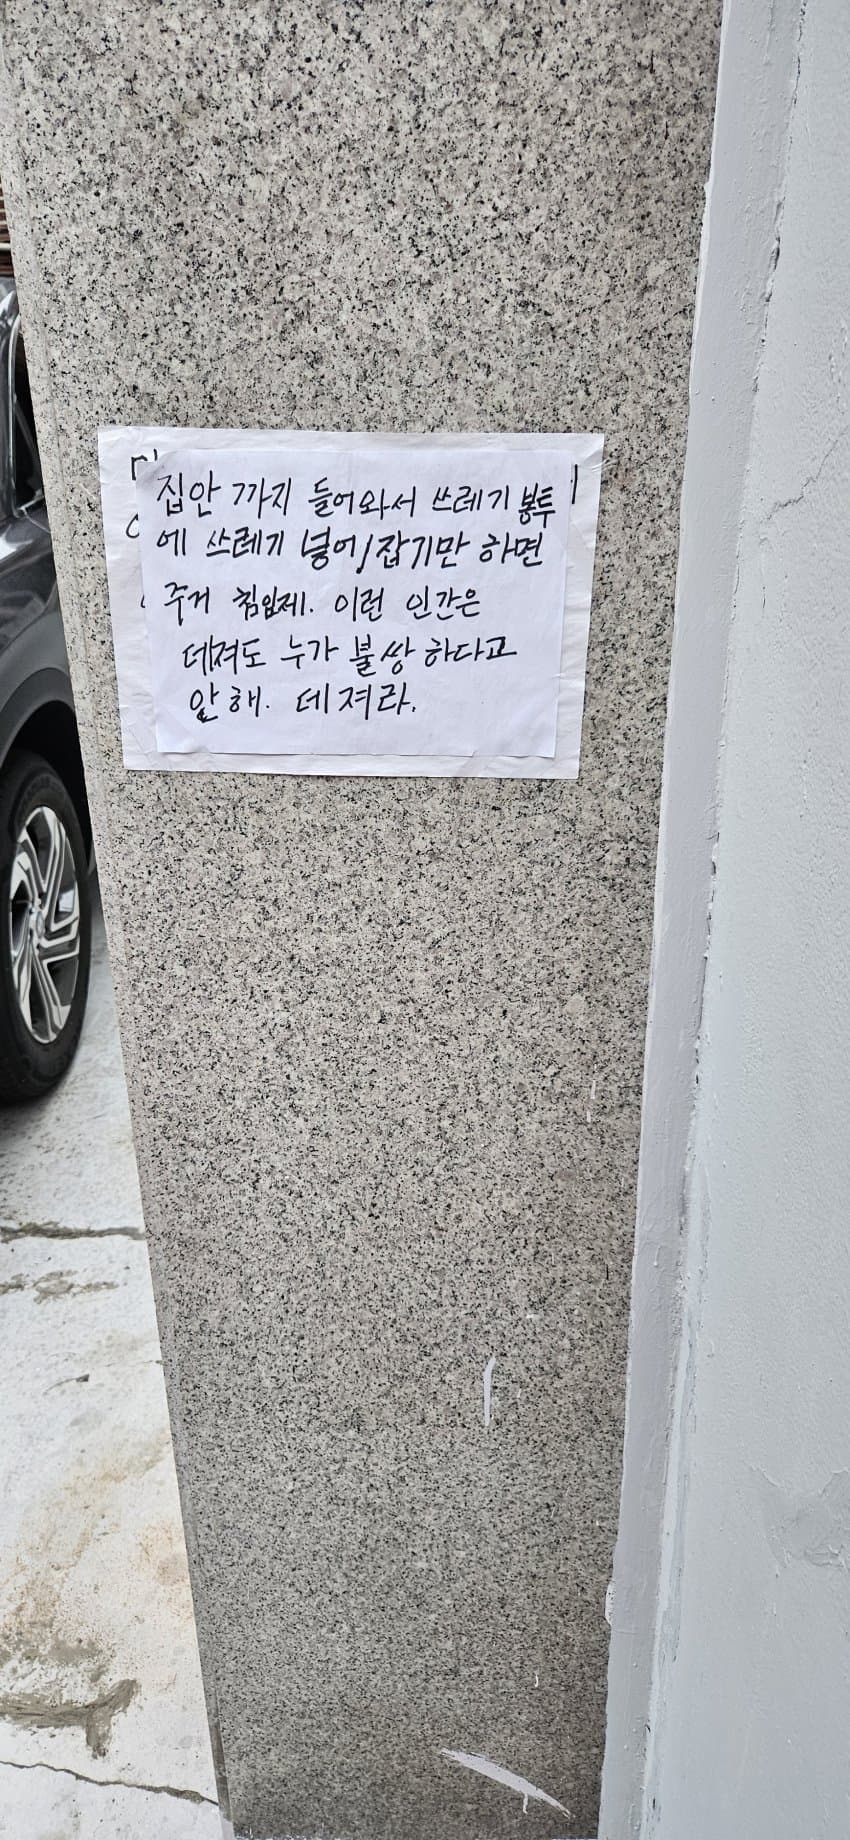 집안 까지 들어와서 쓰레기 봉투
에 쓰레기 넣어/잡기만 하면
주거 침입제. 이런 인간은
데져도 누가 불쌍하다고
안해. 데져라.